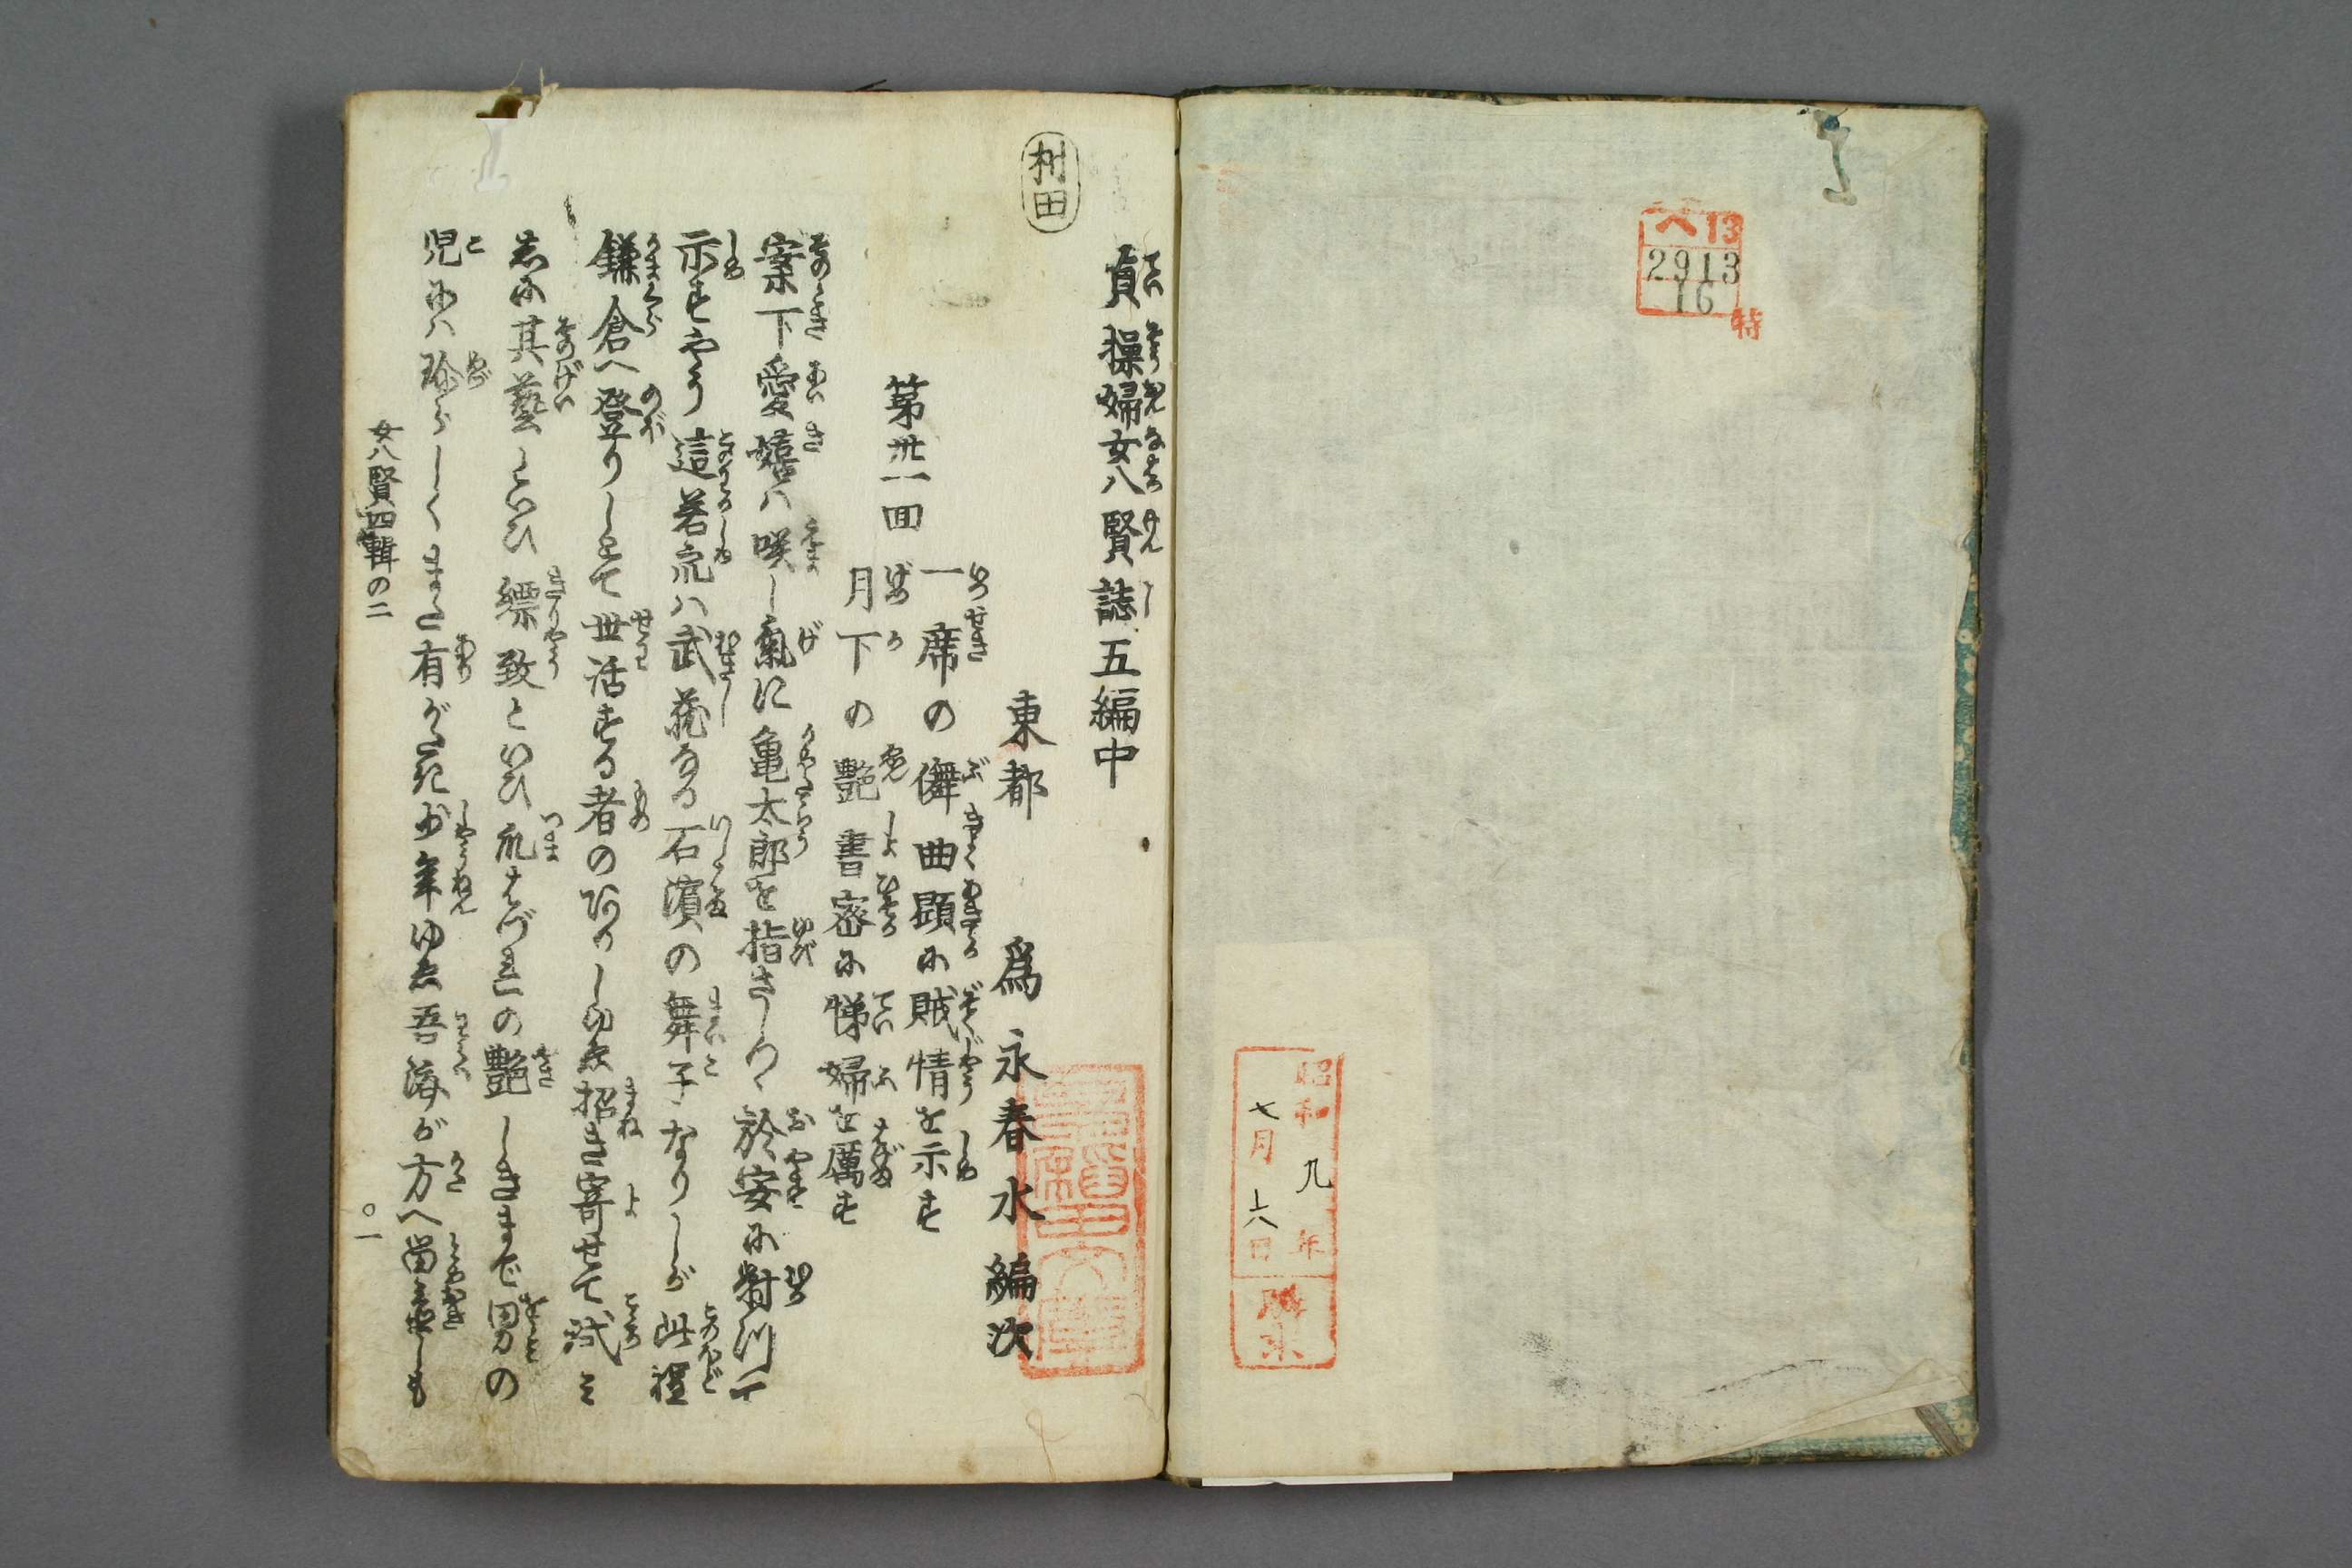 ヘ13
2913
16
特
昭和九年
七月六日
購求
村田
貞操婦女八賢誌五編中
東都 為永春水編次
第卅一回
一席の儛曲顕に賊情を示す
月下の艶書密に悌婦を厲す
案下愛嬉ハ咲し気に亀太郎を指さしつゝ於安に対ひて
示すやう這若衆ハ武蔵なる石濱の舞子なりしが此程
鎌倉へ登りしとて世活する者のありしゆゑ招き寄せて試ミ
しに其藝といひ縹致といひ爪はづれの艶しきまで男の
児にハ珍らしくまた有がたき少年ゆゑ吾海が方へ留置しも
女八賢四輯の二
〇一